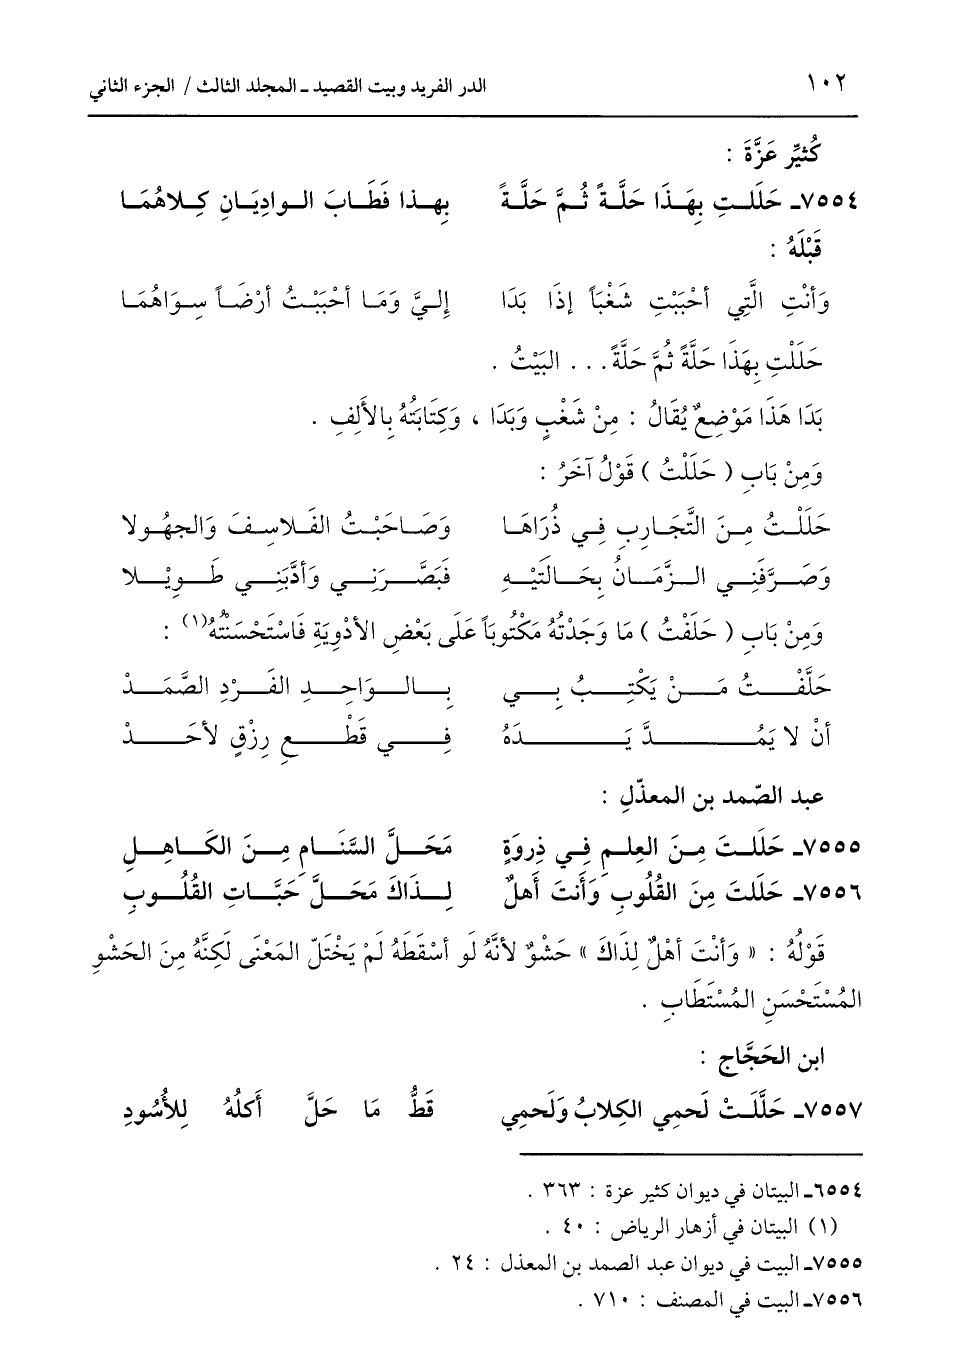 ١٠٢ الدر الفريد وبيت القصيد ـ المجلد الثالث / الجزء الثاني
كُثيِّر عَزَّةَ :
٧٥٥٤ـ حَلَلتِ بِهَذَا حَلَّةً ثُمَّ حَلَّةً بِهذا فَطَابَ الواديَانِ كِلاهُمَا
قَبْلَهُ :
وَأنْتِ الَّتِي أحْبَبْتِ شَغْبَاً إذَا بَدَا إليَّ وَمَا أحْبَبْتُ أرْضَاً سِوَاهُمَا
حَلَلْتِ بِهَذَا حَلَّةً ثُمَّ حَلَّةً . . . البَيْتُ .
بَدَا هَذَا مَوْضِعٌ يُقَالُ : مِنْ شَغْبٍ وَبَدَا ، وَكِتَابَتُهُ بِالأَلِفِ .
وَمِنْ بَابِ ( حَلَلْتُ ) قَوْلُ آخَرُ :
حَلَلْتُ مِنَ التَّجَارِبِ فِي ذُرَاهَا وَصَاحَبْتُ الفَلاسِفَ وَالجهُولا
وَصَرَّفَنِي الزَّمَانُ بِحَالَتَيْهِ فَبَصَّرَنِي وَأدَّبَنِي طَوِيْلا
وَمِنْ بَابِ ( حَلَفْتُ ) مَا وَجَدْتُهُ مَكْتُوبَاً عَلَى بَعْضِ الأدْوِيَةِ فَاسْتَحْسَنْتُهُ(١) :
حَلَّفْتُ مَنْ يَكْتِبُ بِي بِالوَاحِدِ الفَرْدِ الصَّمَدْ
أنْ لا يَمُدَّ يَدَهُ فِي قَطْعِ رِزْقٍ لأحَدْ
عبد الصّمد بن المعذّلِ :
٧٥٥٥ـ حَلَلتَ مِنَ العِلمِ فِي ذِروَةٍ مَحَلَّ السَّنَامِ مِنَ الكَاهِلِ
٧٥٥٦ـ حَلَلتَ مِنَ القُلُوبِ وَأَنتَ أَهلٌ لِذَاكَ مَحَلَّ حَبَّاتِ القُلُوبِ
قَوْلُهُ : « وَأنْتَ أهْلٌ لِذَاكَ » حَشْوٌ لأنَّهُ لَو أسْقَطَهُ لَمْ يَخْتَلّ المَعْنَى لَكِنَّهُ مِنَ الحَشْوِ
المُسْتَحْسَنِ المُسْتَطَابِ .
ابن الحَجَّاجِ :
٧٥٥٧ـ حَلَّلَتْ لَحمِي الكِلابُ وَلَحمِي قَطُّ مَا حَلَّ أَكلُهُ لِلأُسُودِ
٦٥٥٤ـ البيتان في ديوان كثير عزة : ٣٦٣ .
(١) البيتان في أزهار الرياض : ٤٠ .
٧٥٥٥ـ البيت في ديوان عبد الصمد بن المعذل : ٢٤ .
٧٥٥٦ـ البيت في المصنف : ٧١٠ .